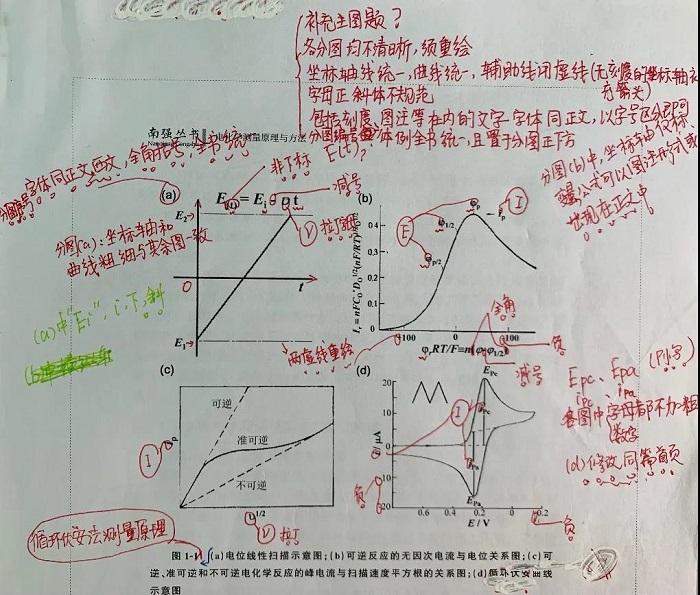 补充主图题?
各分图均不清晰，须重绘
坐标轴线统一，曲线统一，辅助线闭虚线(无刻度的坐标轴末
有箭头)
字母正斜体不规范
包括刻度、图注等在内的文字字体同正文，以字号区分即可
分图编号 体例全书统一，且置于分图正方
南强丛书
测量原理与方法
字体同正文 全角括号，全书统一
非下标 E(t)?
减号
分图(b)中，坐标轴
公式可以图注形式或
出现在正文中
(a)
E(t) = E1 - υt
E2
V 拉丁
分图(a)：坐标轴和
曲线粗细与其余图一致
O
t
E1
(a)中"Ei"，i，下，斜
两虚线重绘
(b)
φp
I
E
φ1/2
φp/2
0.4
0.3
0.2
0.1
0
100
0
-100
φrRT/F=n(φ-φ1/2)
全角
负
减号
(c)
可逆
准可逆
不可逆
I
p
υ1/2
V 拉丁
(d)
Epc
I
ipc
ipa
Epa
10
0
10
20
i / μA
0.6
0.4
0.2
0
0.2
E / V
负
负
Epc、Epa
ipc ipa
各图中字母都不加粗
(数字)
(d)修改同第首页
循环伏安法测量原理
图 1-1 (a)电位线性扫描示意图；(b)可逆反应的无因次电流与电位关系图；(c)可
逆、准可逆和不可逆电化学反应的峰电流与扫描速度平方根的关系图；(d)循环伏安曲线
示意图